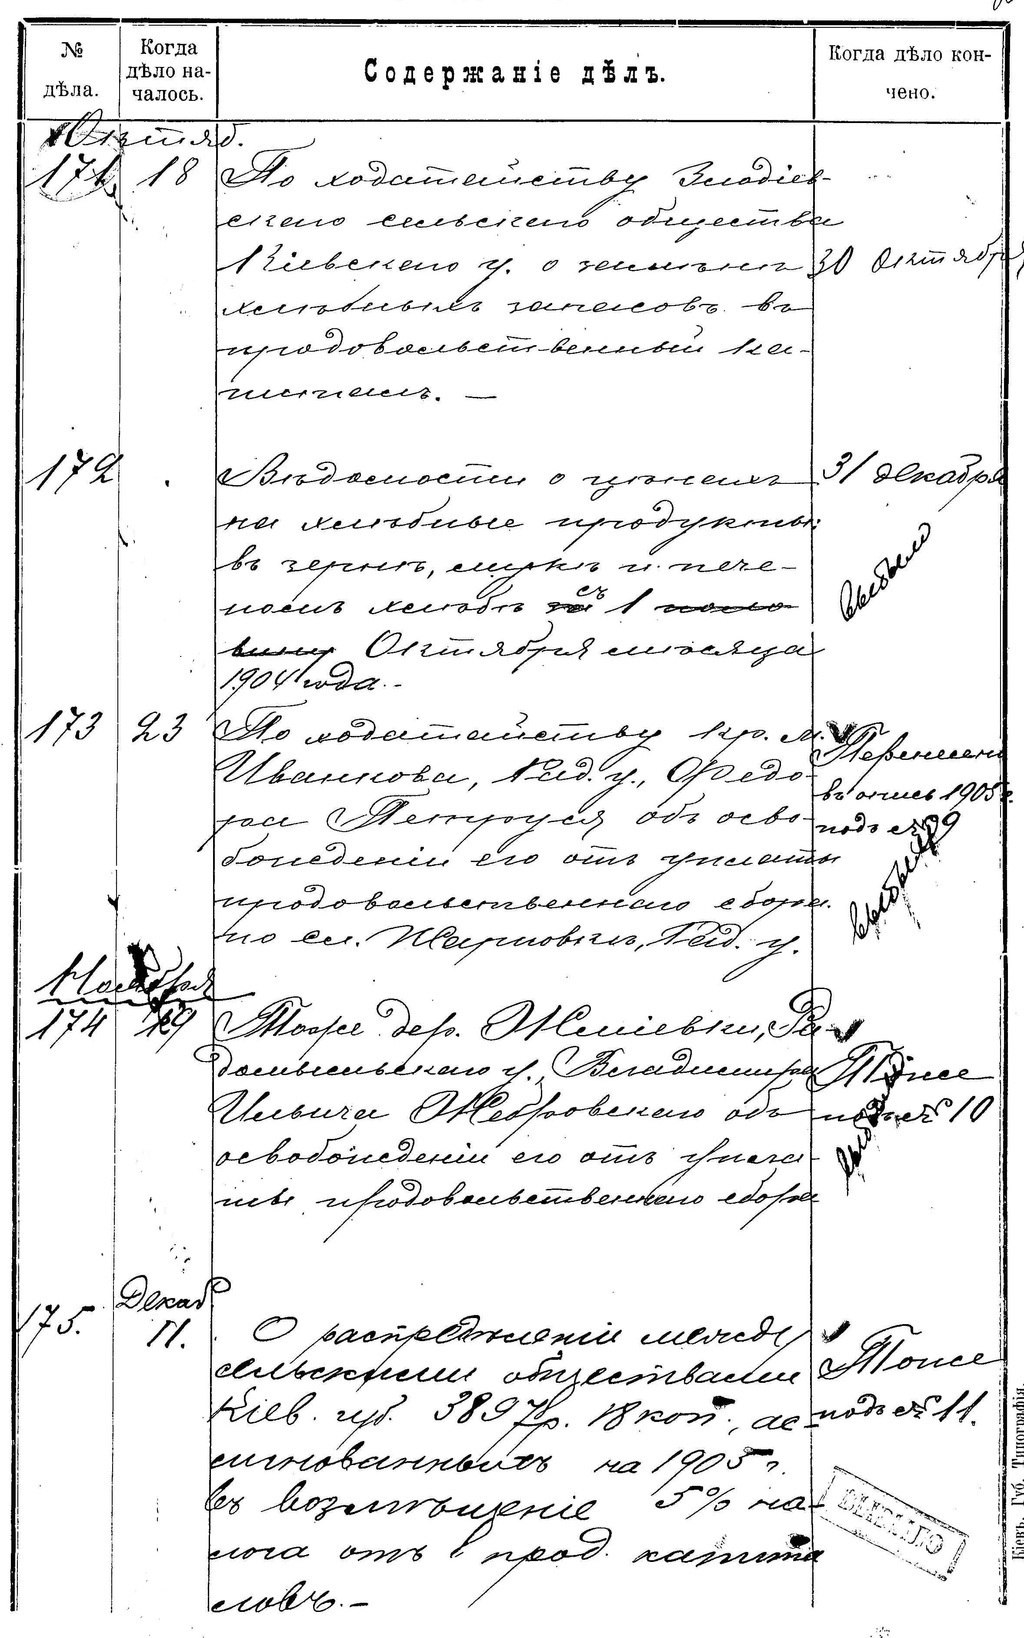 № дѣла.
Когда дѣло на-
чалось.
Содержаніе дѣлъ.
Когда дѣло кон-
чено.
Октяб.
171 18 По ходатайству Злодіев-
скаго сельскаго общества
Кіевскаго у. о замѣнѣ 30 Октября
хлѣбныхъ запасовъ въ
продовольственный ка-
питалъ. —
172 Вѣдомости о цѣнахъ 31 декабря
на хлѣбные продукты
въ зернѣ, мукѣ и пече-
номъ хлѣбѣ съ 1 поло-
вину Октября мѣсяца
1904 года. -
выбыло
173 23 По ходатайству кр. м.
Иванкова, Рад. у., Федо-
ра Петруся объ осво-
божденіи его отъ уплаты
продовольственнаго сбора
по сл. Жарновкѣ, Рад. у.
Перенесено
въ опись 1905 г.
подъ № 9
выбыло
Ноября
174 19 Тоже дер. Жміевки, Ра-
домысльскаго у., Владимира
Ильича Жебровскаго объ
освобожденіи его отъ упла-
ты продовольственнаго сбора
Тоже
подъ № 10
выбыло
Декаб
175. 11. О распредѣленіи между
сельскими обществами
Кіев. губ. 3897 р. 18 коп., ас-
сигнованныхъ на 1905 г.
въ возмѣщеніе 5% на-
лога отъ прод. капита
ловъ. —
Тоже
подъ № 11.
ВЫБЫЛО
Кіевъ. Губ. Типографія.